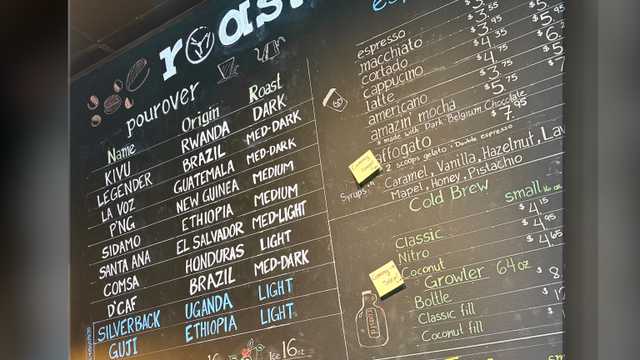 roast
pourover
Name Origin Roast
KIVU RWANDA DARK
LEGENDER BRAZIL MED-DARK
LA VOZ GUATEMALA MED-DARK
P'NG NEW GUINEA MEDIUM
SIDAMO ETHIOPIA MEDIUM
SANTA ANA EL SALVADOR MED-LIGHT
COMSA HONDURAS LIGHT
D'CAF BRAZIL MED-DARK
SILVERBACK UGANDA LIGHT
GUJI ETHIOPIA LIGHT
16oz Ice 16oz
espresso
macchiato
cortado
cappuccino
latte
americano
amazini mocha
* made with Dark Belgium Chocolate
affogato
* 2 scoops gelato + Double espresso
Syrups
Caramel, Vanilla, Hazelnut,
Mapel, Honey, Pistachio
Cold Brew
small 16 oz
Classic $4.15
Nitro $4.95
Coconut $4.65
Growler 64oz
Bottle
Classic fill
Coconut fill